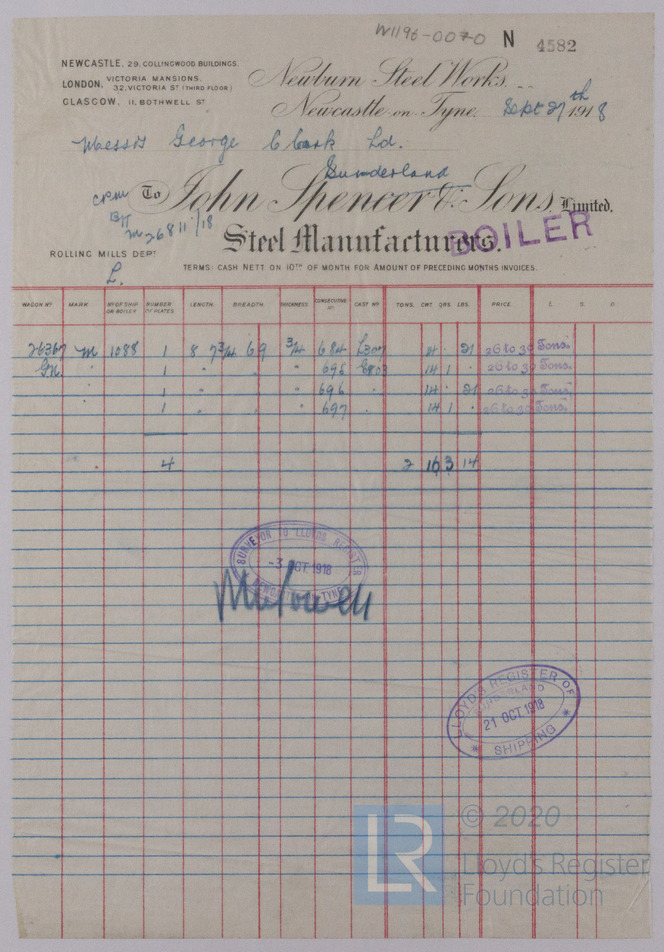 W1196-0070 N 4582
NEWCASTLE, 29, COLLINGWOOD BUILDINGS.
LONDON, VICTORIA MANSIONS, 32, VICTORIA ST (THIRD FLOOR)
GLASCOW, 11, BOTHWELL ST
Newburn Steel Works,
Newcastle on Tyne, Sept 27th 1918
Messrs George Clark Ld.
Sunderland
To John Spencer & Sons, Limited,
Steel Manufacturers.
BOILER
ROLLING MILLS DEPT
L.
TERMS: CASH NETT ON 10TH OF MONTH FOR AMOUNT OF PRECEDING MONTHS INVOICES.
WAGON No MARK. No OF SHIP OR BOILER NUMBER OF PLATES LENGTH. BREADTH. THICKNESS CONSECUTIVE No CAST No TONS. CWT QRS. LBS. PRICE. £. S. D.
26367 M 1088 1 8 7 3/4 69 3/4 684 21 26 to 30 Tons.
1 " " " 695 14 1 26 to 30 Tons.
1 " " " 696 14 21 26 to 30 Tons.
1 " " " 697 14 1 26 to 30 Tons.
4 2 16 3 14
SURVEYOR TO LLOYDS REGISTER
-3 OCT 1918
NEWCASTLE ON TYNE
LLOYD'S REGISTER OF
SUNDERLAND
21 OCT 1918
* SHIPPING *
LR © 2020
Lloyd's Register
Foundation